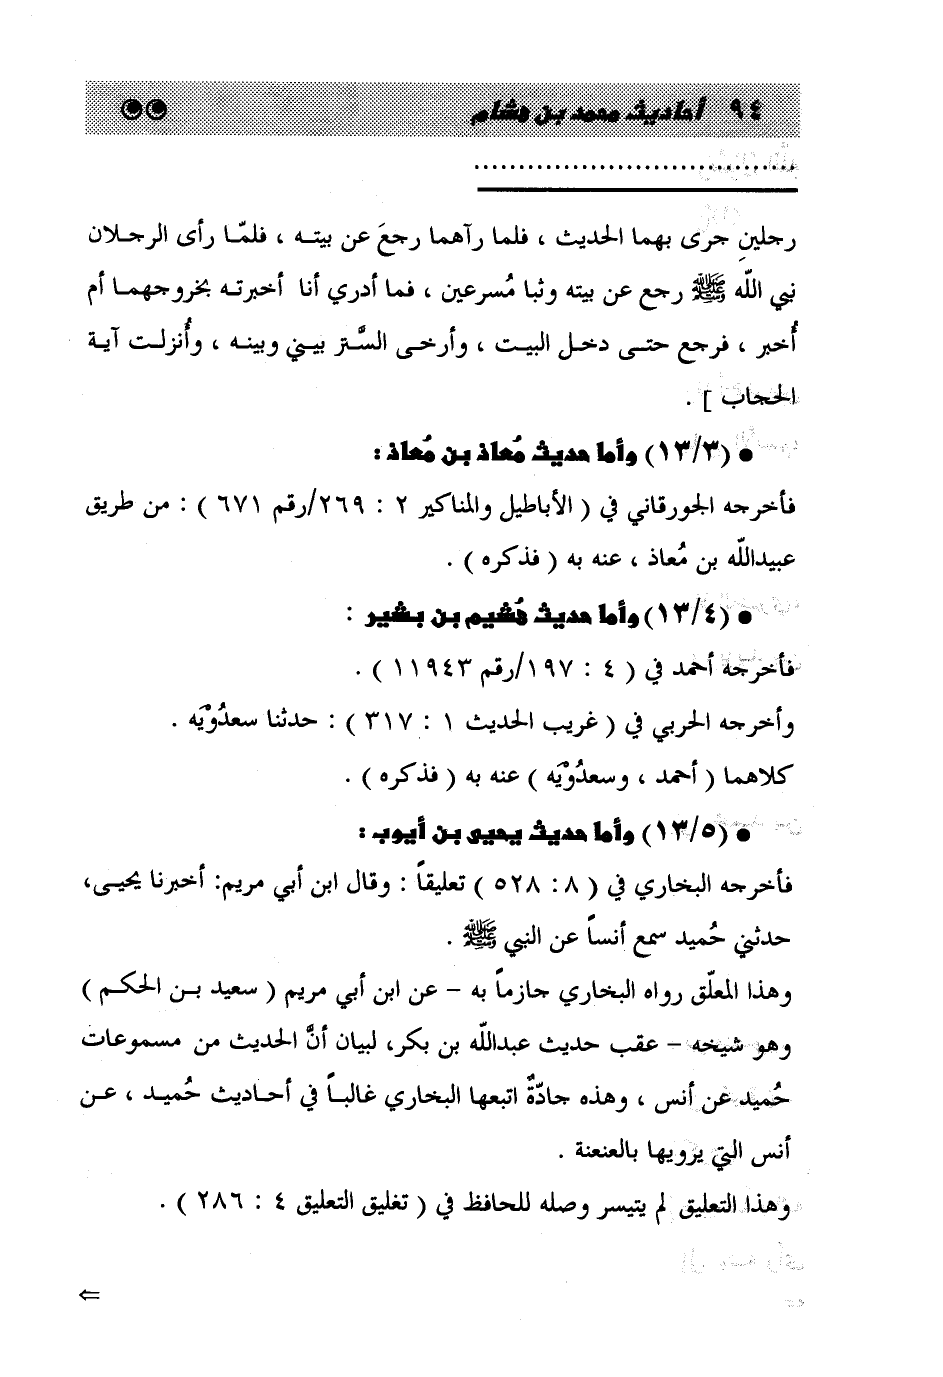 ٩٤ أحاديث محمد بن هشام
................................
رجلينِ جرى بهما الحديث ، فلما رآهما رجعَ عن بيته ، فلمّا رأى الرجلان
نبي اللّه ﷺ رجع عن بيته وثبا مُسرعين ، فما أدري أنا أخبرته بخروجهما أم
أُخبر ، فرجع حتى دخل البيت ، وأرخى السَّتر بيني وبينه ، وأُنزلت آية
الحجاب ] .
● (١٣/٣) وأما حديث مُعاذ بن مُعاذ :
فأخرجه الجورقاني في ( الأباطيل والمناكير ٢ : ٢٦٩/رقم ٦٧١ ) : من طريق
عبيداللّه بن مُعاذ ، عنه به ( فذكره ) .
● (١٣/٤) وأما حديث هُشيم بن بشير :
فأخرجه أحمد في ( ٤ : ١٩٧/رقم ١١٩٤٣ ) .
وأخرجه الحربي في ( غريب الحديث ١ : ٣١٧ ) : حدثنا سعدُوْيَه .
كلاهما ( أحمد ، وسعدُوْيَه ) عنه به ( فذكره ) .
● (١٣/٥) وأما حديث يحيى بن أيوب :
فأخرجه البخاري في ( ٨ : ٥٢٨ ) تعليقاً : وقال ابن أبي مريم: أخبرنا يحيى،
حدثني حُميد سمع أنساً عن النبي ﷺ .
وهذا المعلّق رواه البخاري جازماً به – عن ابن أبي مريم ( سعيد بن الحكم )
وهو شيخه – عقب حديث عبداللّه بن بكر، لبيان أنَّ الحديث من مسموعات
حُميد عن أنس ، وهذه جادّةٌ اتبعها البخاري غالباً في أحاديث حُميد ، عن
أنس التي يرويها بالعنعنة .
وهذا التعليق لم يتيسر وصله للحافظ في ( تغليق التعليق ٤ : ٢٨٦ ) .
⇐